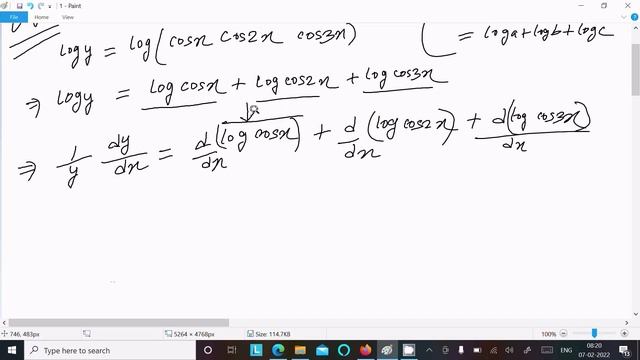 1 - Paint
File Home View
log y = log(cosx cos2x cos3x)
= loga + logb + logc
⇒ log y = log cosx + log cos2x + log cos3x
⇒ 1/y dy/dx = d/dx (log cosx) + d/dx (log cos2x) + d(log cos3x)/dx
746, 483px 5264 × 4768px Size: 114.7KB 100%
Type here to search
ENG 08:20 07-02-2022